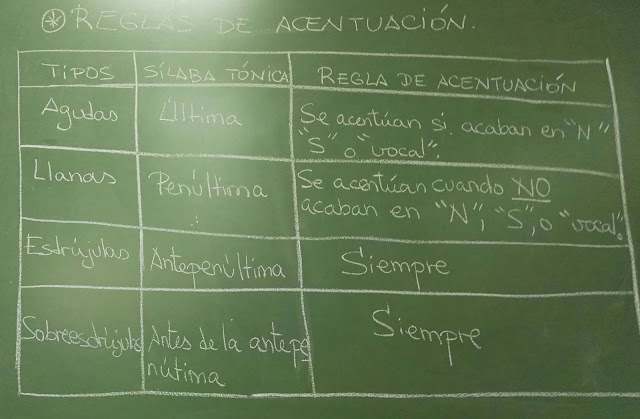 ⊛ REGLAS DE ACENTUACIÓN.
TIPOS SÍLABA TÓNICA REGLA DE ACENTUACIÓN
Agudas Última Se acentúan si acaban en "N"
"S" o "vocal".
Llanas Penúltima Se acentúan cuando NO
acaban en "N", "S", o "vocal".
Esdrújulas Antepenúltima Siempre
Sobreesdrújulas Antes de la antepe Siempre
núltima